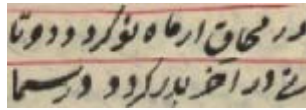 در محاق ار ماه نو گردد دو تا
نی در آخر بدر گردد در سما